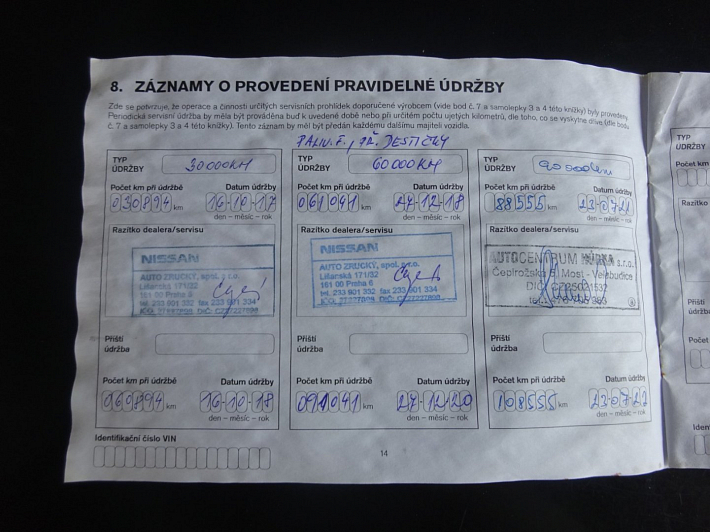 8. ZÁZNAMY O PROVEDENÍ PRAVIDELNÉ ÚDRŽBY
Zde se potvrzuje, že operace a činnosti určitých servisních prohlídek doporučené výrobcem (vide bod č. 7 a samolepky 3 a 4 této knížky) byly provedeny.
Periodická servisní údržba by měla být prováděna buď k uvedené době nebo při určitém počtu ujetých kilometrů, dle toho, co se vyskytne dříve (dle bodu
č. 7 a samolepky 3 a 4 této knížky). Tento záznam by měl být předán každému dalšímu majiteli vozidla.
PALIV. F., PŘ. DESTIČKY
TYP ÚDRŽBY 30000KM
Počet km při údržbě Datum údržby
030894 km 16-10-17
den – měsíc – rok
Razítko dealera/servisu
NISSAN
AUTO ZRUCKÝ, spol. s r.o.
Libešická 171/32
161 00 Praha 6
tel. 233 901 332 fax 233 901 334
Příští údržba
Počet km při údržbě Datum údržby
060894 km 16-10-18
den – měsíc – rok
TYP ÚDRŽBY 60000KM
Počet km při údržbě Datum údržby
061041 km 27-12-18
den – měsíc – rok
Razítko dealera/servisu
NISSAN
AUTO ZRUCKÝ, spol. s r.o.
171/32
161 00 Praha 6
tel. 233 901 332 fax 233 901 334
Příští údržba
Počet km při údržbě Datum údržby
091041 km 27-12-20
den – měsíc – rok
TYP ÚDRŽBY 90000km
Počet km při údržbě Datum údržby
88555 km 23-07-21
den – měsíc – rok
Razítko dealera/servisu
AUTOCENTRUM s.r.o.
Čepirožská Most - Velebudice
DIČ
tel.
Příští údržba
Počet km při údržbě Datum údržby
108555 km 23-07-22
den – měsíc – rok
Identifikační číslo VIN
14
TYP
ÚDRŽBY
Počet km
Razítko
Příští
údržba
Počet